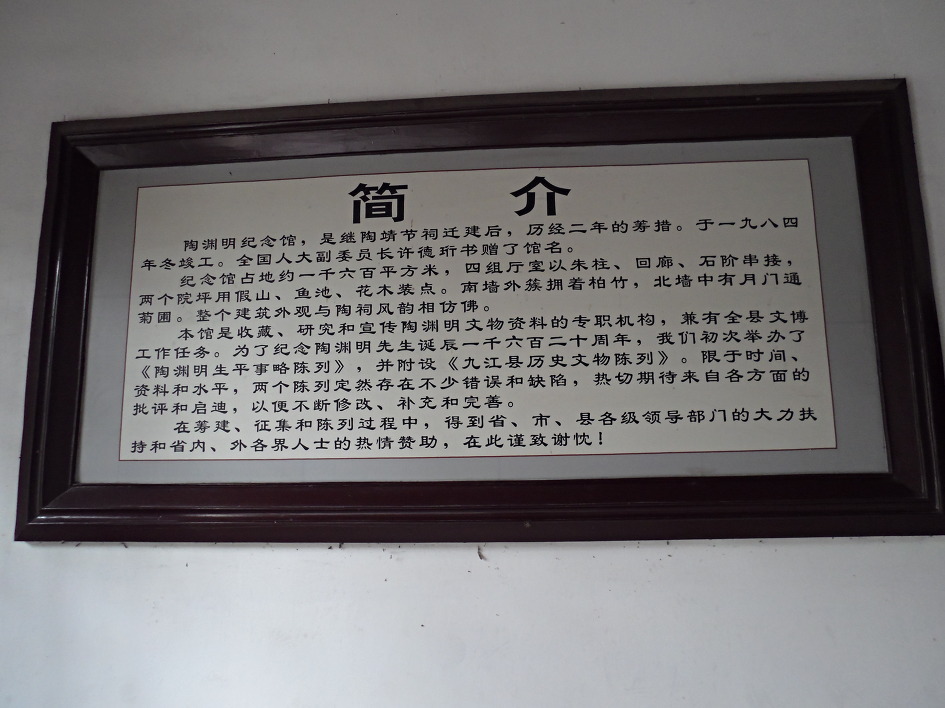 简 介
陶渊明纪念馆，是继陶靖节祠迁建后，历经二年的筹措。于一九八四
年冬竣工。全国人大副委员长许德珩书赠了馆名。
纪念馆占地约一千六百平方米，四组厅室以朱柱、回廊、石阶串接，
两个院坪用假山、鱼池、花木装点。南墙外簇拥着柏竹，北墙中有月门通
菊圃。整个建筑外观与陶祠风韵相仿佛。
本馆是收藏、研究和宣传陶渊明文物资料的专职机构，兼有全县文博
工作任务。为了纪念陶渊明先生诞辰一千六百二十周年，我们初次举办了
《陶渊明生平事略陈列》，并附设《九江县历史文物陈列》。限于时间、
资料和水平，两个陈列定然存在不少错误和缺陷，热切期待来自各方面的
批评和启迪，以便不断修改、补充和完善。
在筹建、征集和陈列过程中，得到省、市、县各级领导部门的大力扶
持和省内、外各界人士的热情赞助，在此谨致谢忱！